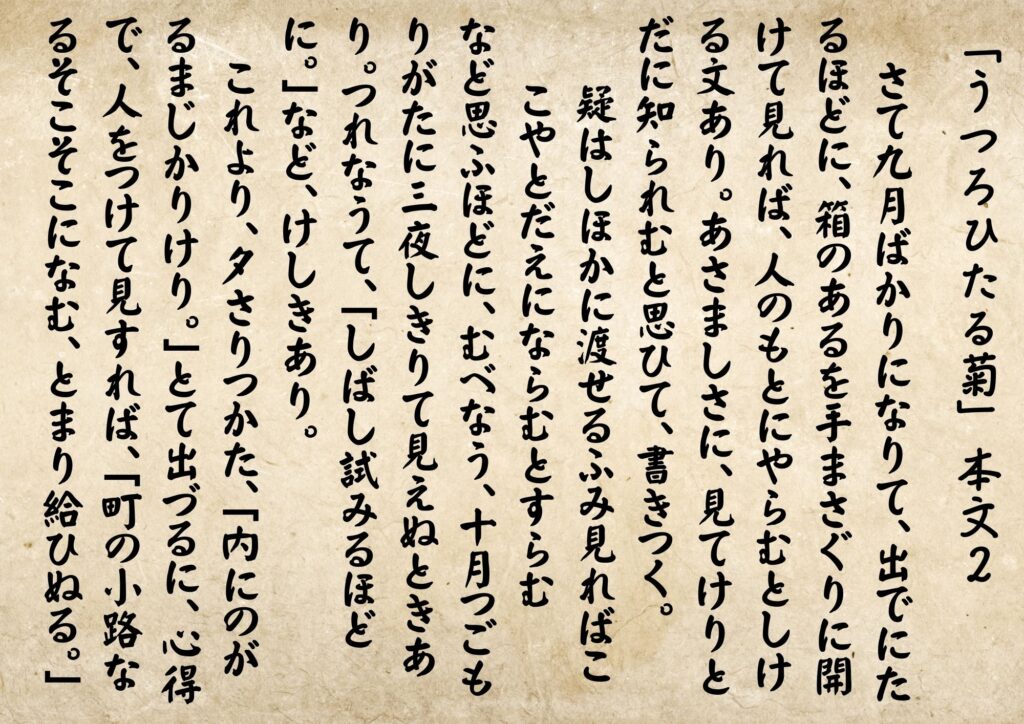 「うつろひたる菊」 本文2
さて九月ばかりになりて、出でにた
るほどに、箱のあるを手まさぐりに開
けて見れば、人のもとにやらむとしけ
る文あり。あさましさに、見てけりと
だに知られむと思ひて、書きつく。
疑はしほかに渡せるふみ見ればこ
こやとだえにならむとすらむ
など思ふほどに、むべなう、十月つごも
りがたに三夜しきりて見えぬときあ
り。つれなうて、「しばし試みるほど
に。」など、けしきあり。
これより、夕さりつかた、「内にのが
るまじかりけり。」とて出づるに、心得
で、人をつけて見すれば、「町の小路な
るそこそこになむ、とまり給ひぬる。」